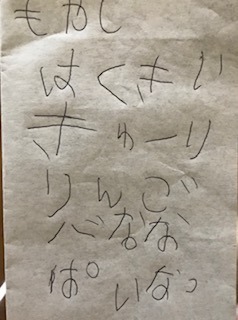 もやし
はくさい
きゅーり
りんご
バなな
ぱいなっ